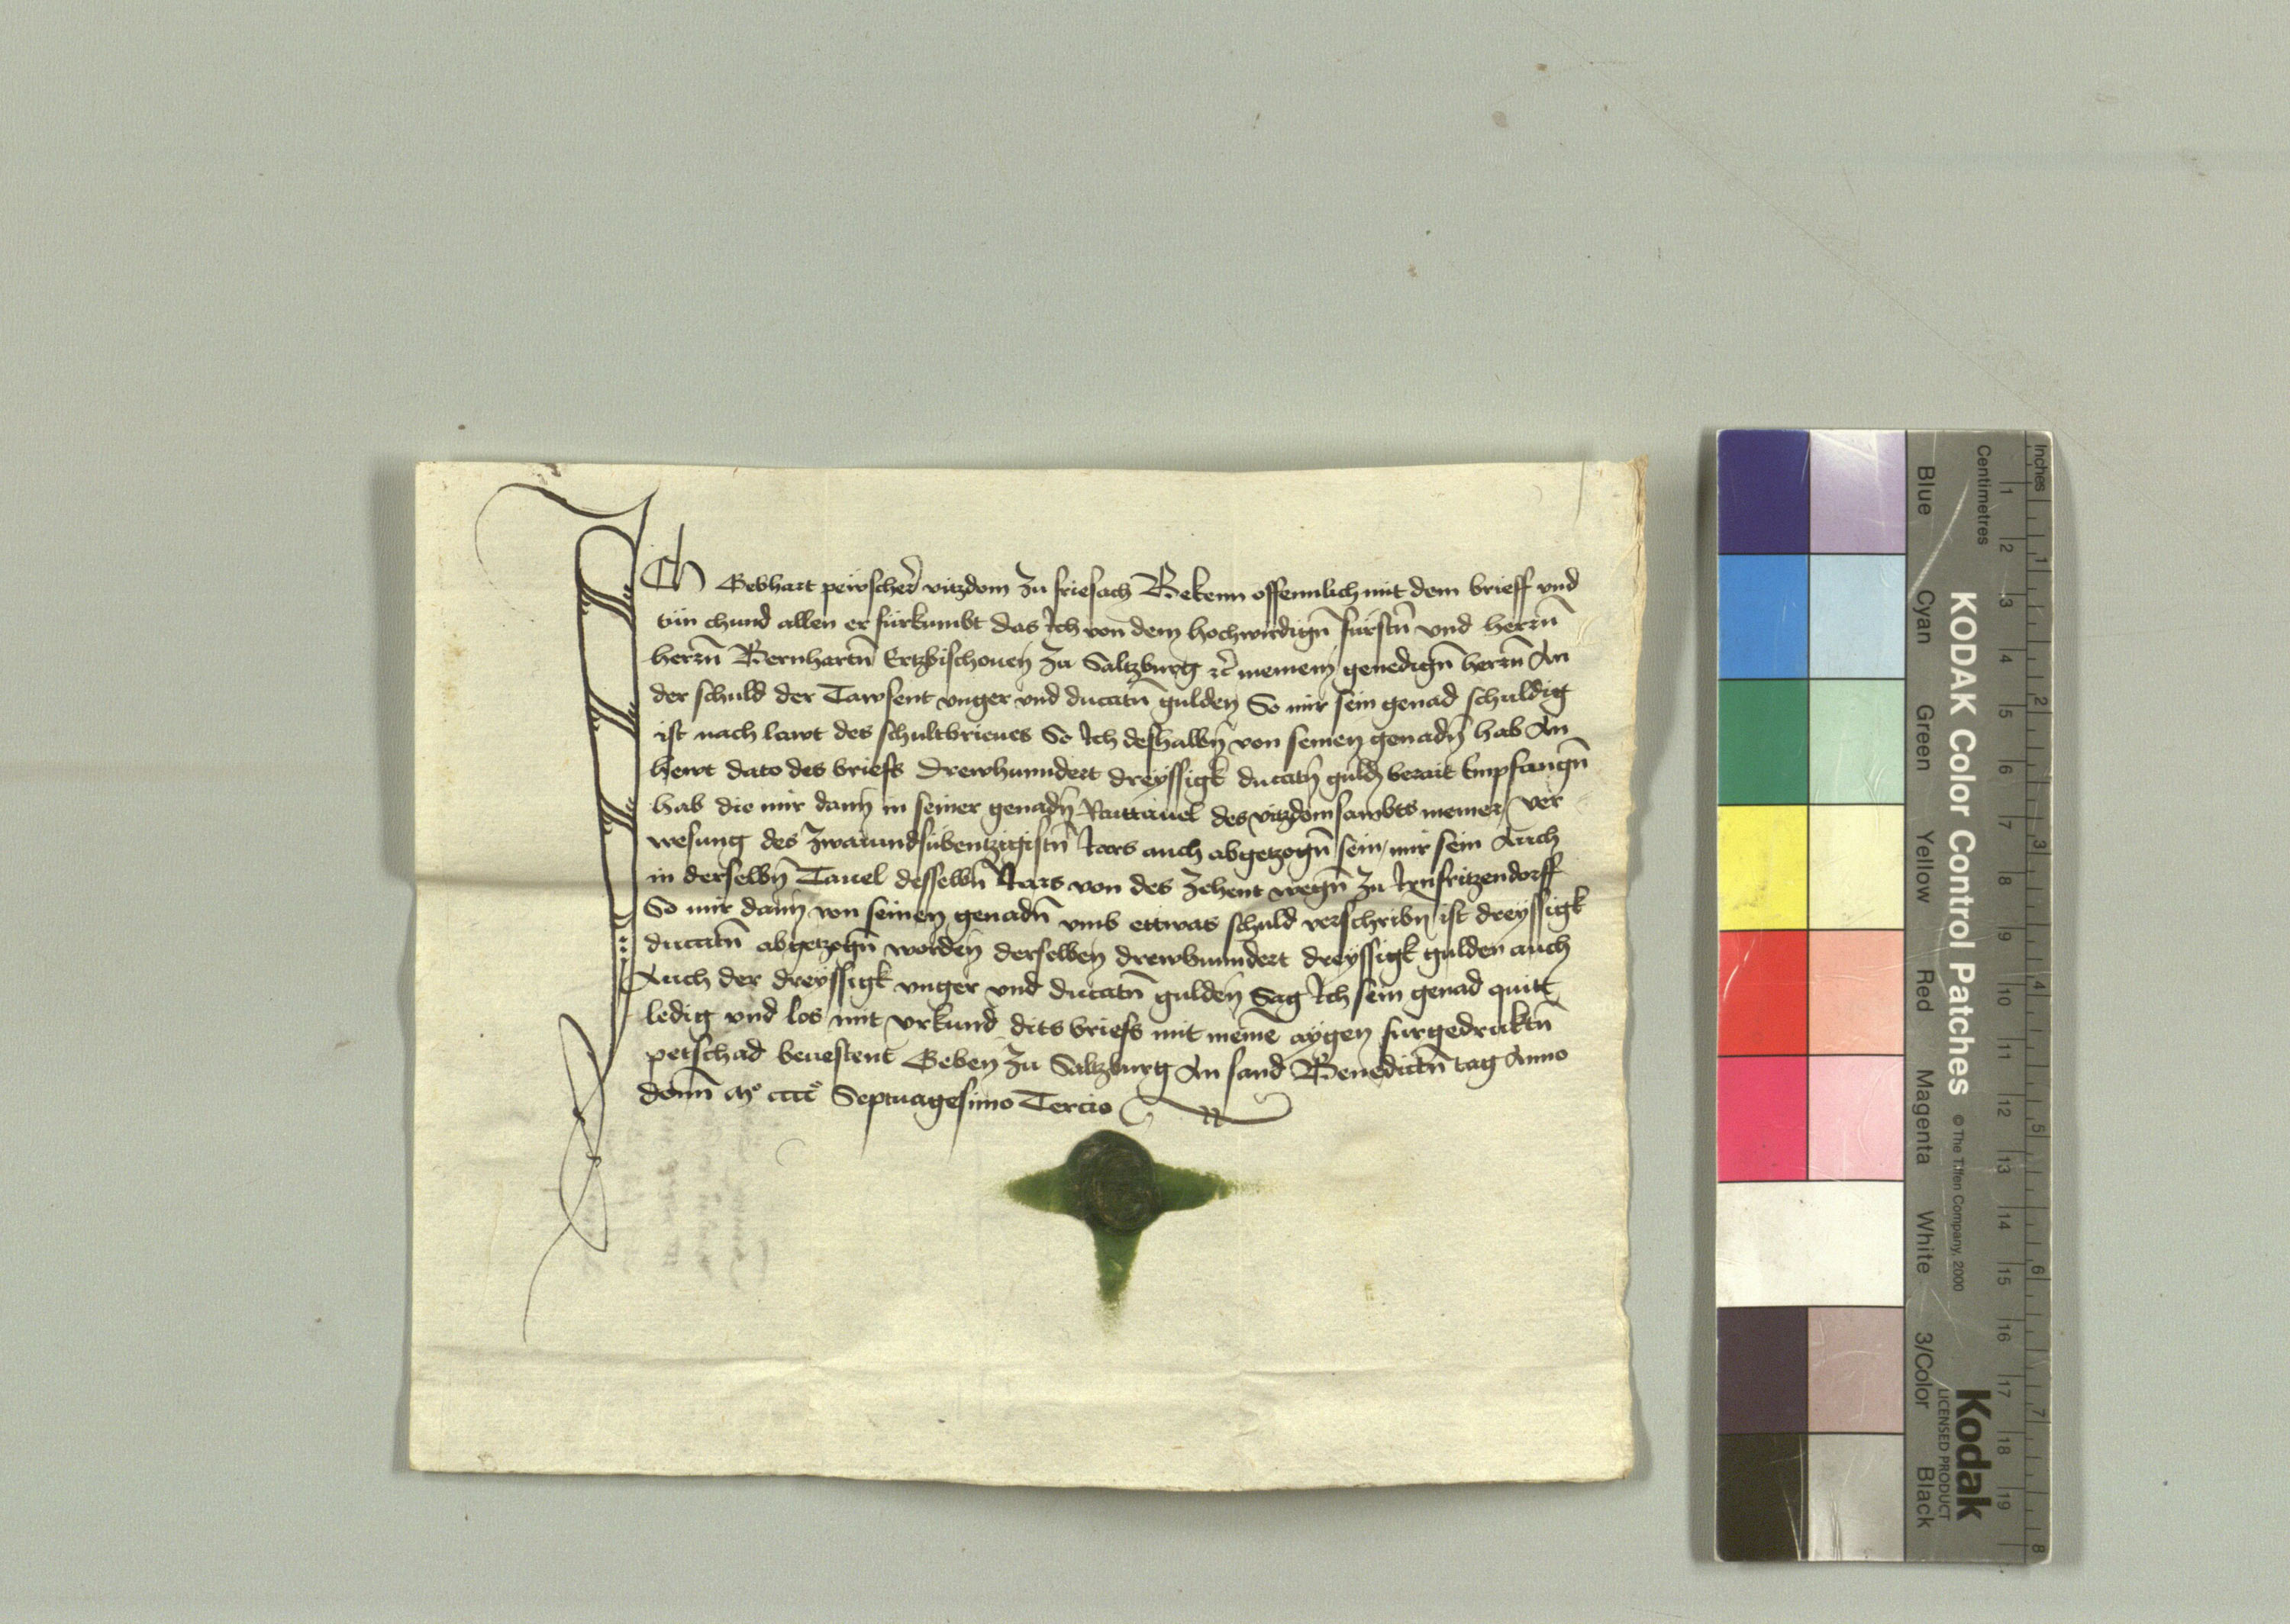 Ich Gebhart pewscher vitzdom zu friesach Bekenn offennlich mit dem brieff vnd
tún chund allen er fúrkumbt das Ich von dem hochwirdign̄ fúrstn̄ vnd herrn̄
herrn̄ Bernhartn̄ Ertzbischouen zu Saltzburg rc̄ meinem genedign̄ herrn̄ An
der schuld der Tawsent vnger vnd ducatn̄ gulden So mir sein genad schuldig
ist nach lawt des schultbrieues So Ich deshalbn̄ von seinen genadn̄ hab An
hewt dato des briefs Drewhunndert dreyssigk ducatn̄ guldn̄ berait Empfangn̄
hab die mir dann in seiner genadn̄ Rattauel des vitzdomsambts meiner ver
wesung des zwaiundsúbentzigistn̄ Iars auch abgetzogn̄ sein / mir sein Auch
in derselbn̄ Tauel desselbn̄ Iars von des zehent wegn̄ zu
So mir dann von seinen genadn̄ vmb ettwas schuld verschribn̄ ist dreyssigk
ducatn̄ abgetzogn̄ worden derselben drewhunndert dreyssigk gulden auch
Auch der dreyssigk vnger vnd ducatn̄ gulden Sag Ich sein genad quitt
ledig vnd los mit vrkund dits briefs mit meinē aygen furgedruktn̄
petschad beuestent Geben zu Saltzburg An sand Benedictn̄ tag Anno
domī Mº ccccº Septuagesimo Tercio
KODAK Color Control Patches
© The Tiffen Company, 2000
Kodak
LICENSED PRODUCT
Blue Cyan Green Yellow Red Magenta White 3/Color Black
Centimetres 1 2 3 4 5 6 7 8 9 10 11 12 13 14 15 16 17 18 19
Inches 1 2 3 4 5 6 7 8